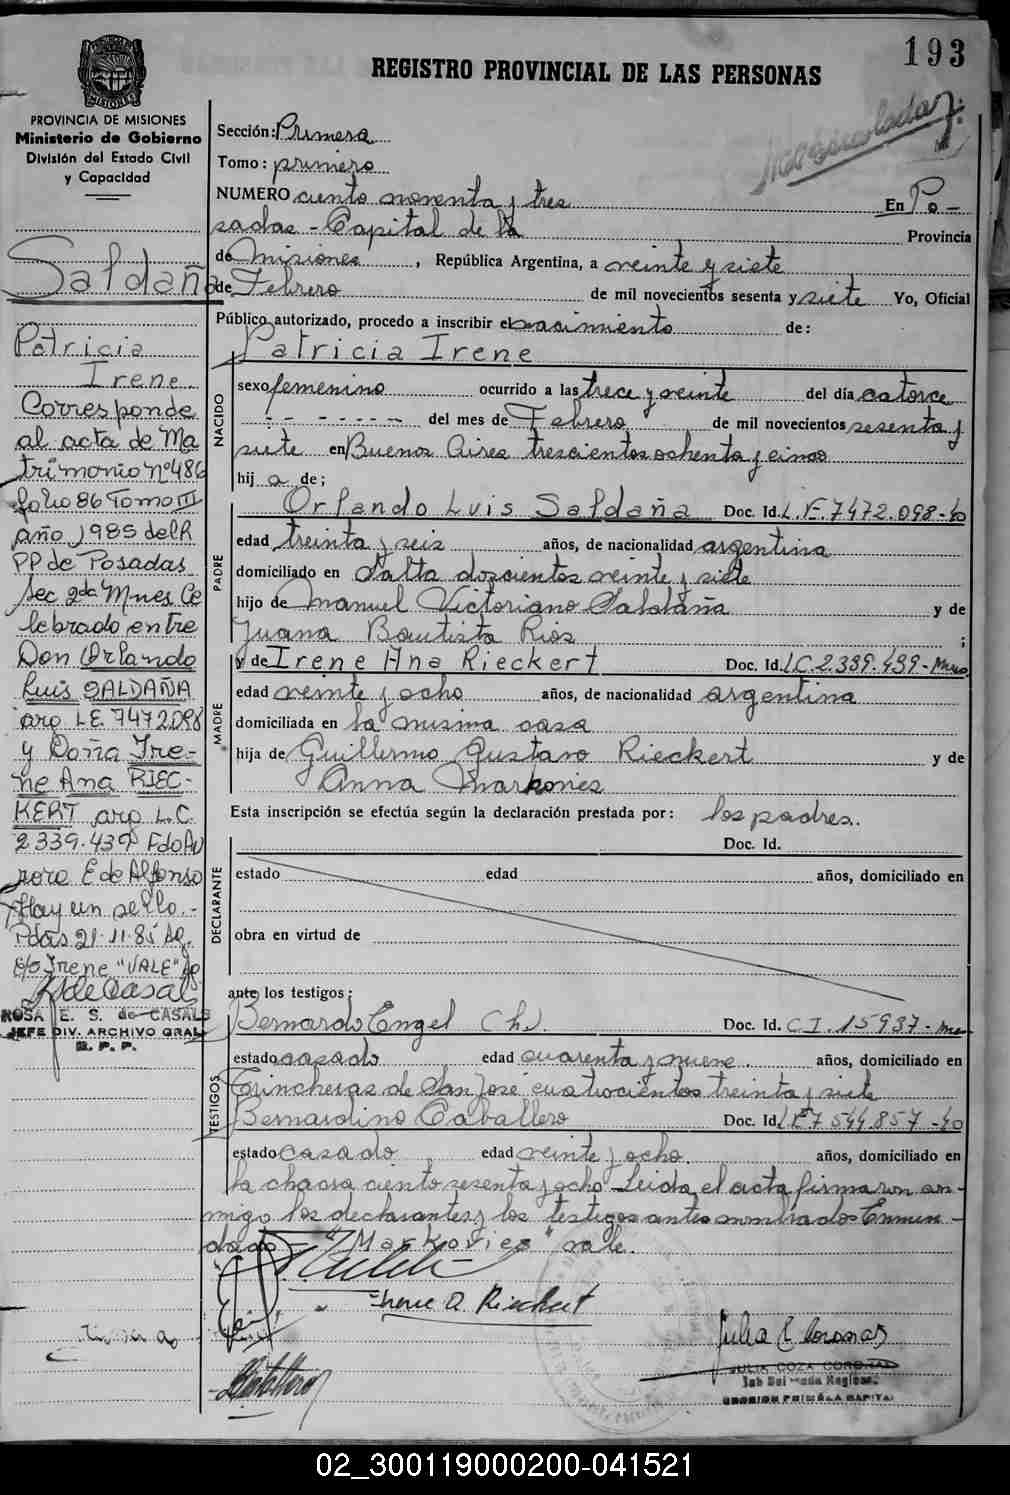 193
REGISTRO PROVINCIAL DE LAS PERSONAS
PROVINCIA DE MISIONES
Ministerio de Gobierno
División del Estado Civil
y Capacidad
Saldaña
Patricia
Irene
Corresponde
al acta de Ma
trimonio nº486
folio 86 Tomo III
año 1985 del R
PP de Posadas
Sec 2da Mnes Ce
lebrado entre
Don Orlando
Luis SALDAÑA
arg LE 7472098
y Doña Ire-
ne Ana RIEC-
KERT arg L.C.
2339.439 Fdo Au
rora E de Alfonso
Hay un sello.-
Pdas 21.11.85
Irene "VALE"
R de Casals
ROSA E. S. de CASALS
JEFE DIV. ARCHIVO GRAL
R. P. P.
Sección: Primera
Tomo: primero
NUMERO ciento noventa y tres En Po-
sadas - Capital de la Provincia
de Misiones, República Argentina, a veinte y siete
de Febrero de mil novecientos sesenta y siete Yo, Oficial
Público autorizado, procedo a inscribir el nacimiento de:
Patricia Irene
NACIDO
sexo femenino ocurrido a las trece y veinte del día catorce
- - - - - - - del mes de Febrero de mil novecientos sesenta y
siete en Buenos Aires trescientos ochenta y cinco
hij a de;
PADRE
Orlando Luis Saldaña Doc. Id. L.E. 7472.098-
edad treinta y seis años, de nacionalidad argentina
domiciliado en Salta doscientos veinte y siete
hijo de Manuel Victoriano Saldaña y de
Juana Bautista Rios ;
MADRE
y de Irene Ana Rieckert Doc. Id. LC.2.339.439-
edad veinte y ocho años, de nacionalidad argentina
domiciliada en la misma casa
hija de Guillermo Gustavo Rieckert y de
Anna Markovies
Esta inscripción se efectúa según la declaración prestada por: los padres.
DECLARANTE
Doc. Id.
estado edad años, domiciliado en
obra en virtud de
ante los testigos:
TESTIGOS
Bernardo Engel (h). Doc. Id. C.I. 15937-
estado casado edad cuarenta y nueve. años, domiciliado en
Trincheras de San José cuatrocientos treinta y siete
Bernardino Caballero Doc. Id. LE7 544.857 -
estado casado edad veinte y ocho. años, domiciliado en
la chacra ciento sesenta y ocho. Leida el acta firmaron con-
migo los declarantes y los testigos antes nombrados Enmen-
dado "Markovies" vale.
Irene A. Rieckert
Julia C. Coronas
JULIA COZA
SECCION PRIMERA CAPITAL
02_300119000200-041521